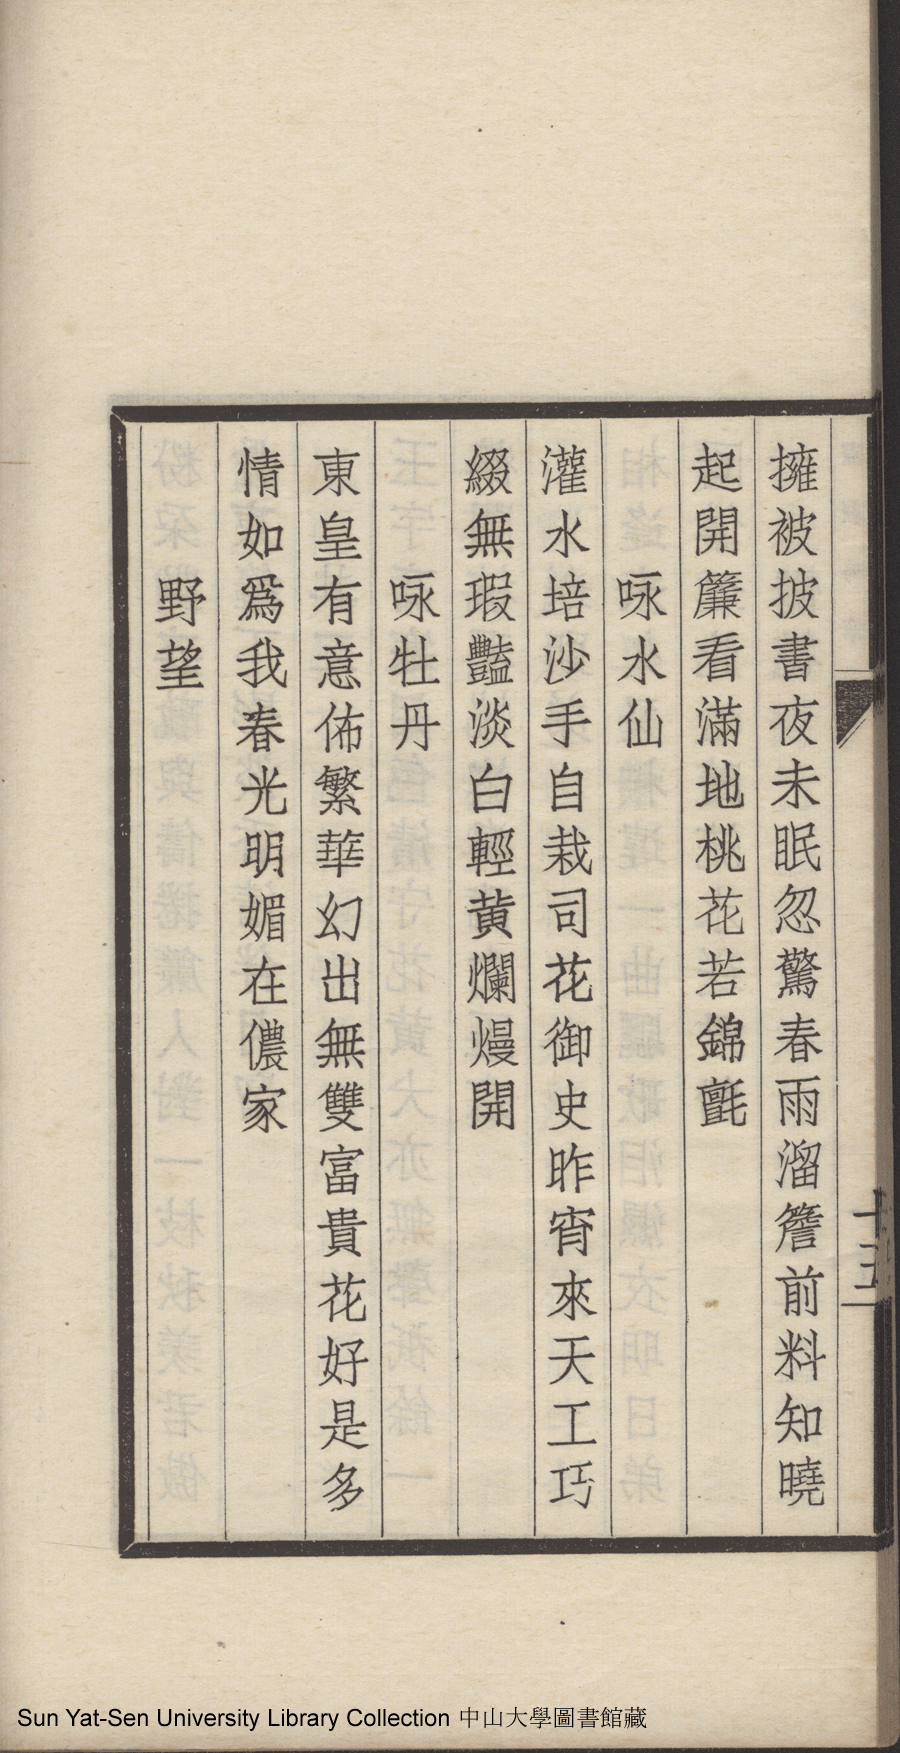 擁被披書夜未眠忽驚春雨溜簷前料知曉
起開簾看滿地桃花若錦氈
咏水仙
灌水培沙手自栽司花御史昨宵來天工巧
綴無瑕豔淡白輕黃爛熳開
咏牡丹
東皇有意佈繁華幻出無雙富貴花好是多
情如爲我春光明媚在儂家
野望
十五
Sun Yat-Sen University Library Collection 中山大學圖書館藏